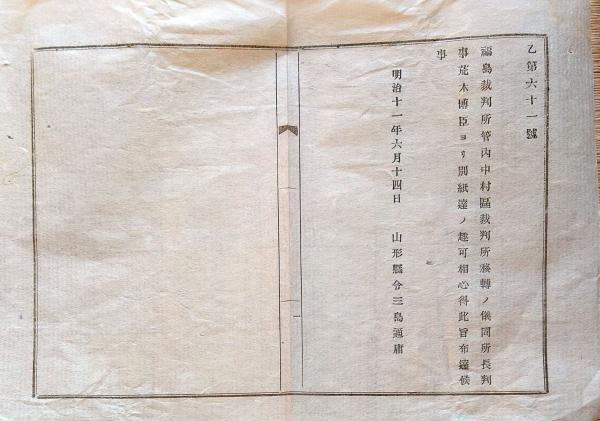 乙第六十一號
福島裁判所管内中村區裁判所移轉ノ儀同所長判
事荒木博臣ヨリ別紙達ノ趣可相心得此旨布達候
事
明治十一年六月十四日　山形縣令三島通庸